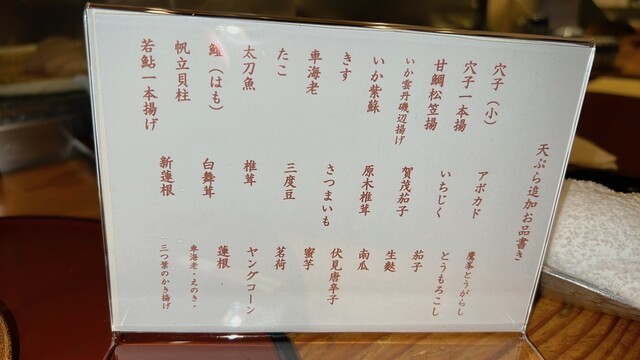 天ぷら追加お品書き
穴子(小)
穴子一本揚
甘鯛松笠揚
いか雲丹磯辺揚げ
いか紫蘇
きす
車海老
たこ
太刀魚
鱧(はも)
帆立貝柱
若鮎一本揚げ
アボカド
いちじく
賀茂茄子
原木椎茸
さつまいも
三度豆
椎茸
白舞茸
新蓮根
鷹峯とうがらし
とうもろこし
茄子
生麩
南瓜
伏見唐辛子
蜜芋
茗荷
ヤングコーン
蓮根
車海老・えのき・
三つ葉のかき揚げ